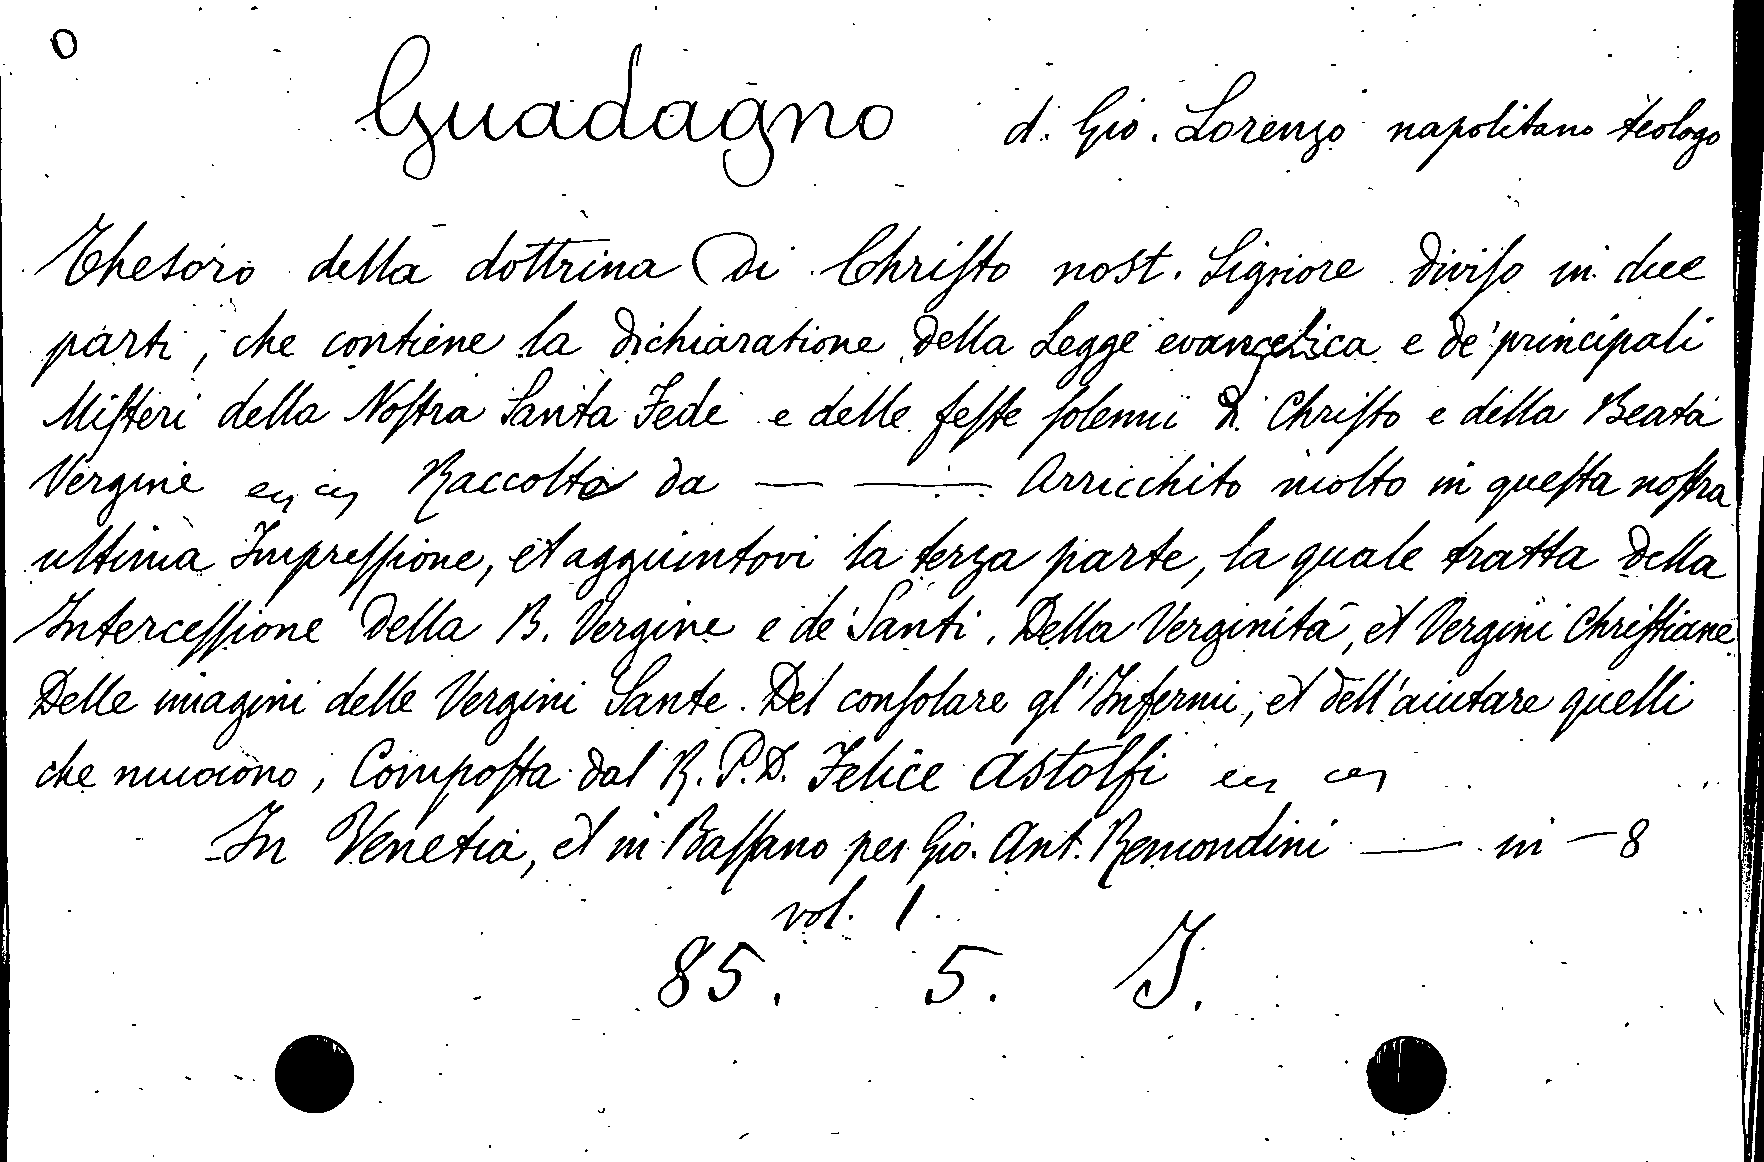 O
Guadagno d. Gio. Lorenzo napolitano teologo
Thesoro della dottrina Di Chriſto nost. Signore Diviſo in due
parti, che contiene la Dichiaratione Della Legge evangelica e de' principali
Miſteri della Noſtra Santa Fede e delle feſte ſolenni Di Chriſto e della Beata
Vergine Raccolto da — — Arricchito molto in queſta noſtra
ultima Impreſſione, et aggiuntovi la terza parte, la quale tratta Della
Interceſſione Della B. Vergine e de' Santi. Della Verginità, et Vergini Chriſtiane
Delle imagini delle Vergini Sante. Del conſolare gl'Infermi, et dell'aiutare quelli
che muoiono, Compoſta dal R. P. D. Felice Astolfi
In Venetia, et in Baſſano per Gio. Ant. Remondini — in — 8
vol. 1.
85. 5. J.